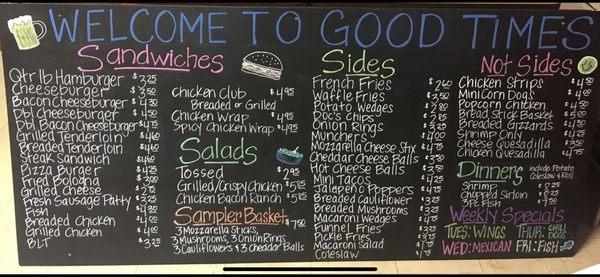 WELCOME TO GOOD TIMES
Sandwiches
Qtr lb Hamburger $3.25
Cheeseburger $3.50
Bacon Cheeseburger $4.30
Dbl Cheeseburger
Dbl Bacon Cheeseburger
Grilled Tenderloin $4.60
Breaded Tenderloin $4.60
Steak Sandwich $4.60
Pizza Burger
Fried Bologna
Grilled Cheese
Fresh Sausage Patty
Fish
Breaded Chicken
Grilled Chicken
BLT $3.25
Chicken Club $4.95
Breaded or Grilled
Chicken Wrap $4.95
Spicy Chicken Wrap $4.95
Salads
Tossed $2.95
Grilled/Crispy Chicken
Chicken Bacon Ranch
Sampler Basket $7.50
3 Mozzarella Sticks,
3 Mushrooms, 3 Onion Rings
3 Cauliflowers + 3 Cheddar Balls
Sides
French Fries
Waffle Fries
Potato Wedges
Doc's Chips
Onion Rings
Munchers
Mozzarella Cheese Stix $4.75
Cheddar Cheese Balls
Hot Cheese Balls
Mini Tacos
Jalapeno Poppers
Breaded Cauliflower
Breaded Mushrooms
Macaroni Wedges
Funnel Fries
Pickle Fries
Macaroni Salad
Coleslaw
Not Sides
Chicken Strips
Mini Corn Dogs
Popcorn Chicken
Bread Stick Basket
Breaded Gizzards
Shrimp Only
Cheese Quesadilla
Chicken Quesadilla $4.75
Dinners include Potato
Coleslaw & Roll
Shrimp
Chopped Sirloin
3 Pc Fish
Weekly Specials
TUES: WINGS THUR: CHILI DOGS
WED: MEXICAN FRI: FISH